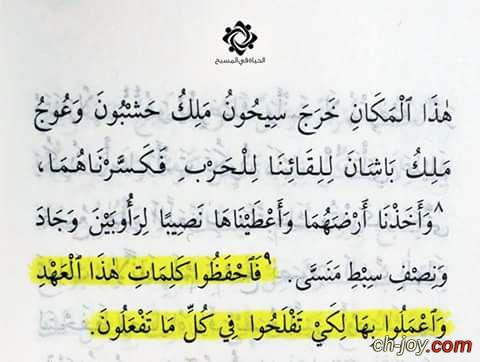 الحياة في المسيح
هٰذَا ٱلْمَكَانِ خَرَجَ سِيحُونُ مَلِكُ حَشْبُونَ وَعُوجُ
مَلِكُ بَاشَانَ لِلِقَائِنَا لِلْحَرْبِ فَكَسَّرْنَاهُمَا،
٨وَأَخَذْنَا أَرْضَهُمَا وَأَعْطَيْنَاهَا نَصِيبًا لِرَأُوبَيْنَ وَجَادَ
وَنِصْفِ سِبْطِ مَنَسَّى. ٩فَٱحْفَظُوا كَلِمَاتِ هٰذَا ٱلْعَهْدِ
وَٱعْمَلُوا بِهَا لِكَيْ تَفْلَحُوا فِي كُلِّ مَا تَفْعَلُونَ.
ch-joy.com